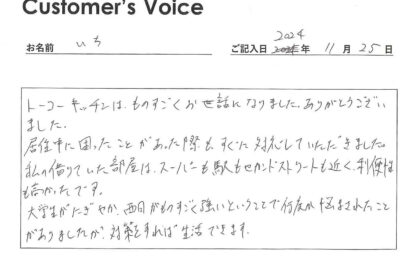 Customer's Voice
2024
お名前 いち ご記入日 年 11 月 25 日
トーコーキッチンは、ものすごくお世話になりました。ありがとうござい
ました。
居住中に困ったことがあった際もすぐに対応していただきました。
私の借りていた部屋は、スーパーも駅もセカンドストリートも近く、利便性
も高かったです。
大学生がにぎやか、西日がものすごく強いということで何度か悩まされたこと
がありましたが、対策をすれば生活できます。